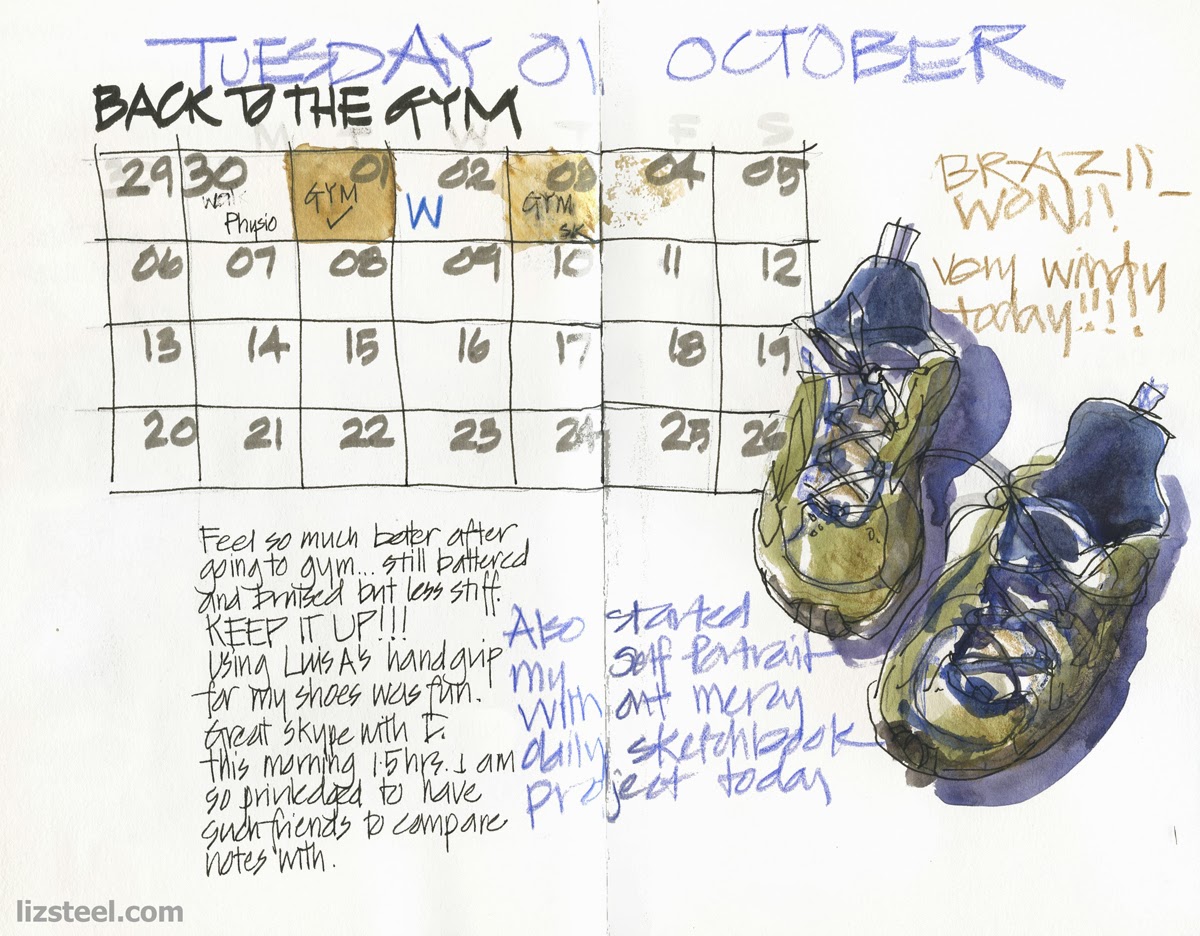 TUESDAY 01 OCTOBER
BACK TO THE GYM
M T W T F S
29 30 01 02 03 04 05
Walk
Physio
GYM
✓
W
GYM
SK
06 07 08 09 10 11 12
13 14 15 16 17 18 19
20 21 22 23 24 25 26
BRAZIL
WON!!
very windy
today!!!!
Feel so much better after
going to gym... still battered
and bruised but less stiff.
KEEP IT UP!!!
Using Luis A's hand grip
for my shoes was fun.
Great skype with E.
this morning 1.5hrs. I am
so priviledged to have
such friends to compare
notes with.
Also started
my self portrait
with out mercy
daily sketchbook
project today
lizsteel.com